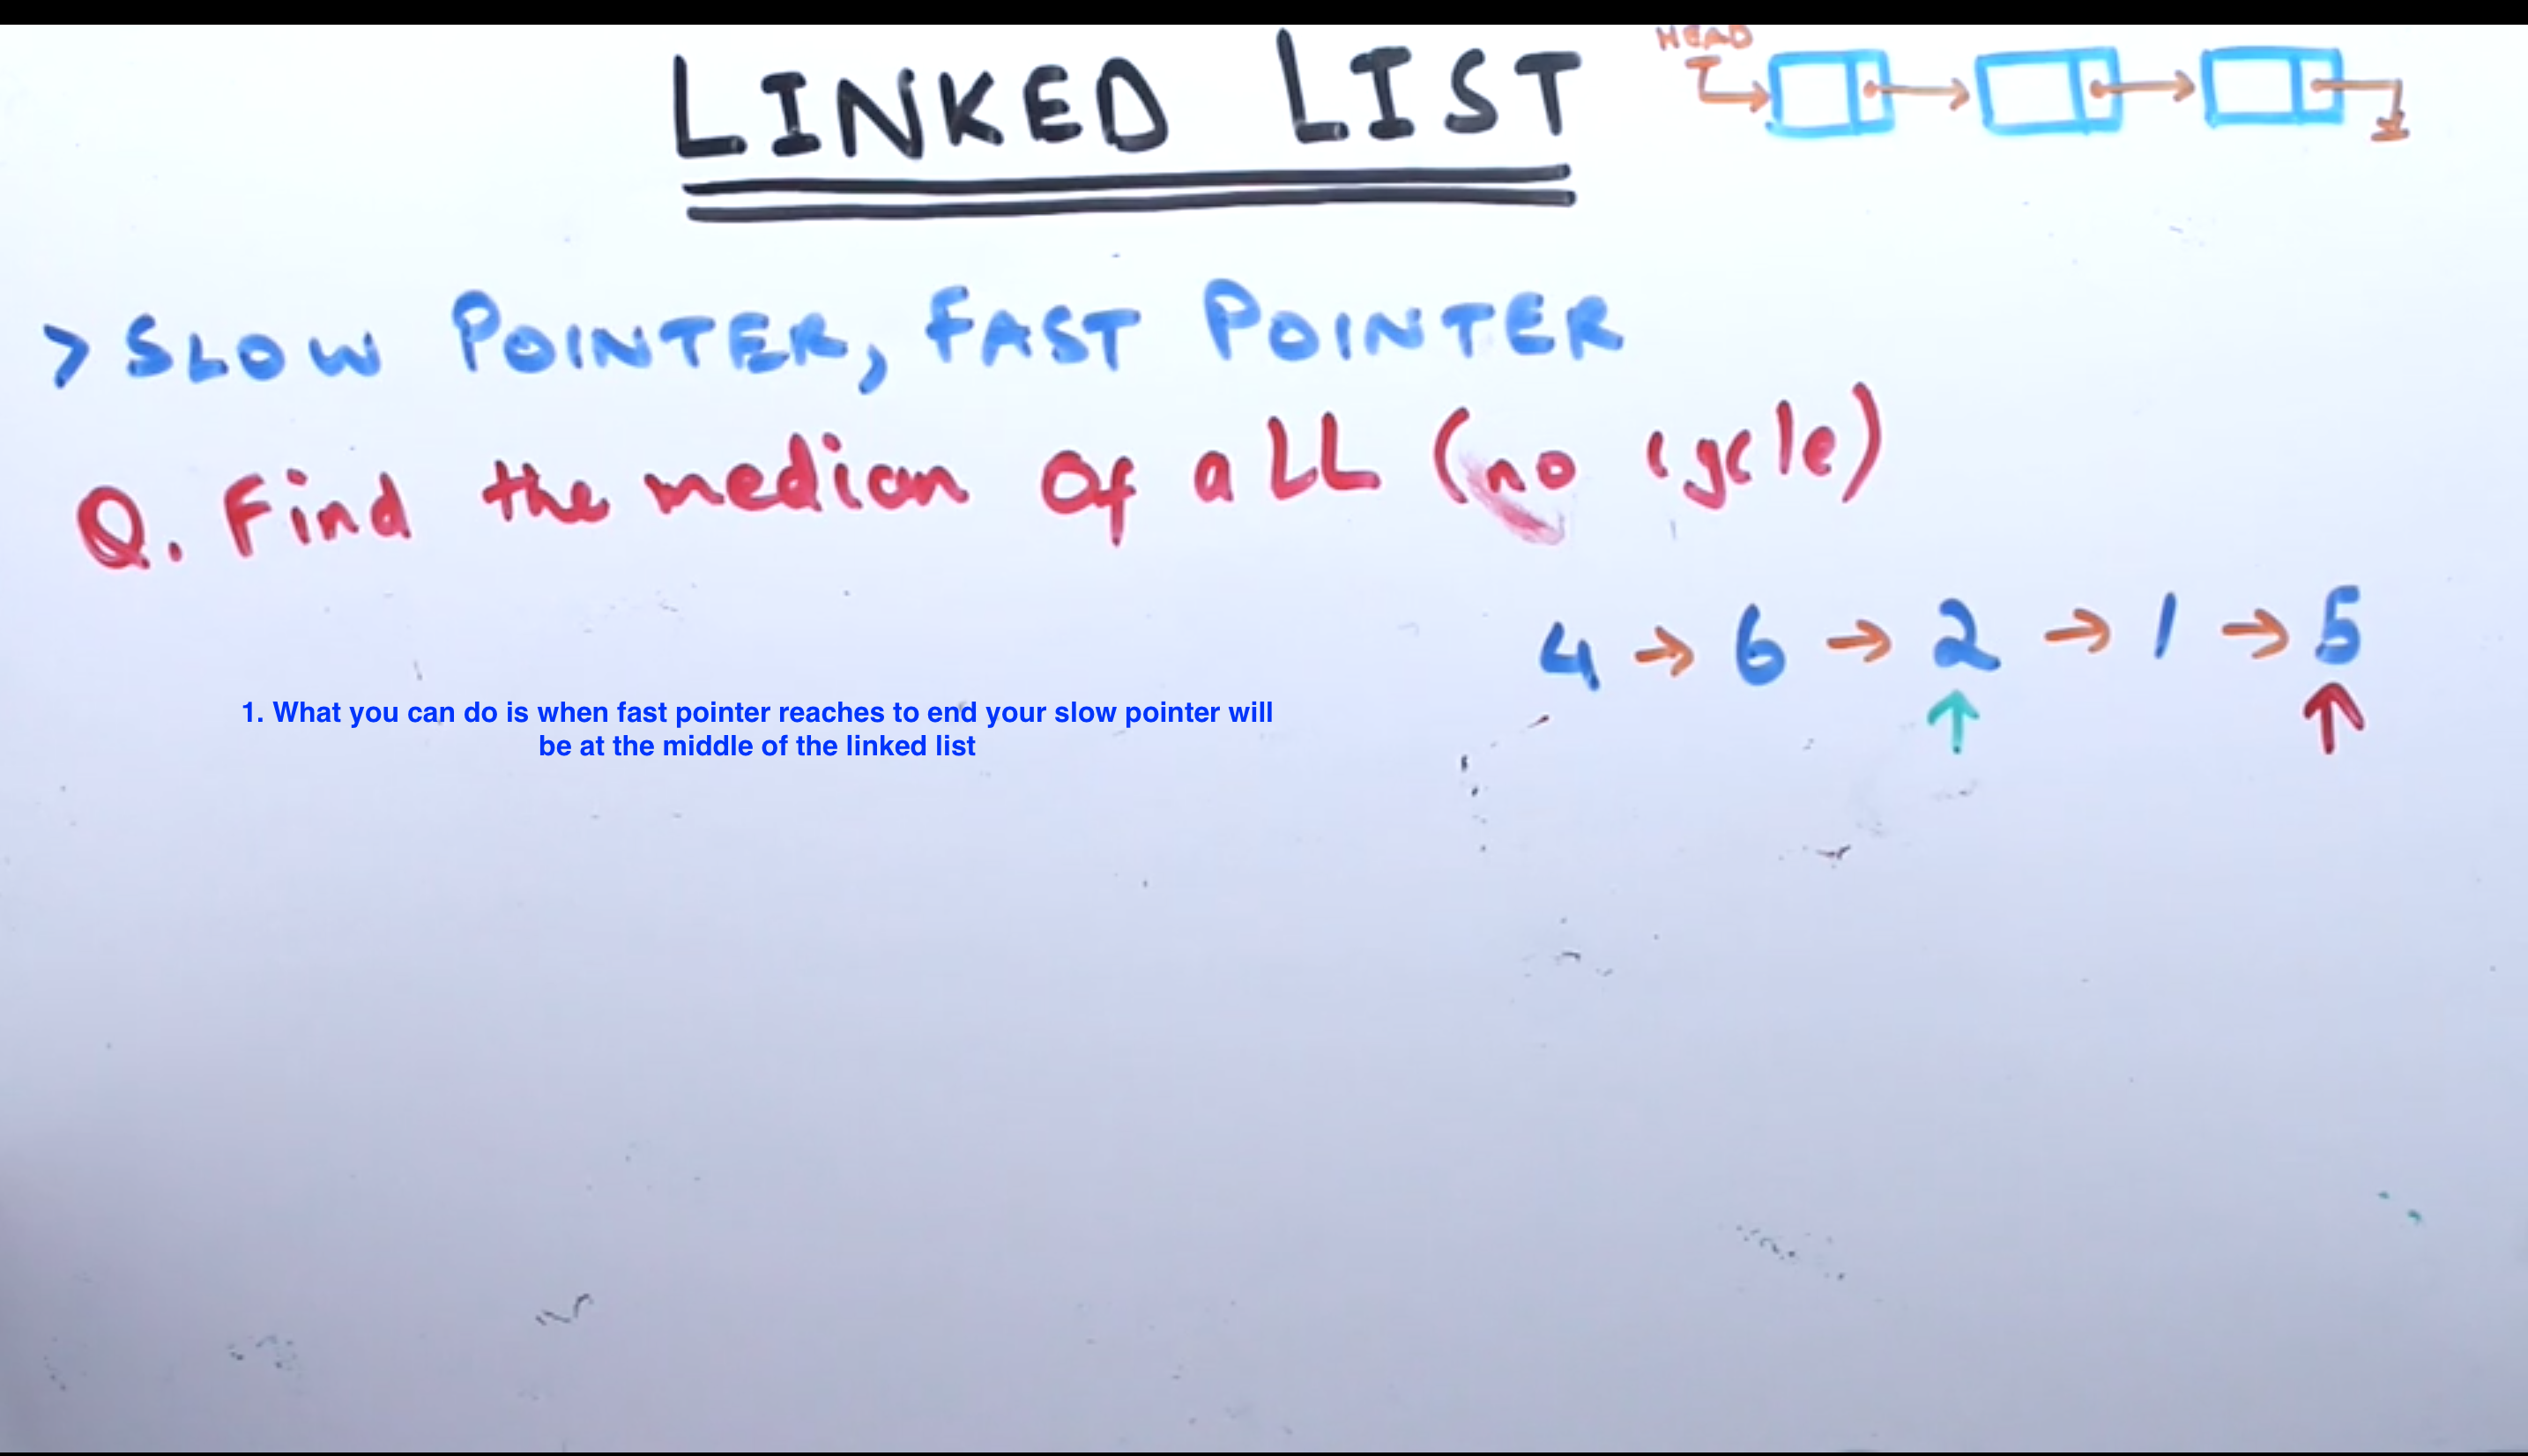 LINKED LIST
HEAD
> SLOW POINTER, FAST POINTER
Q. Find the median of a LL (no cycle)
4 → 6 → 2 → 1 → 5
1. What you can do is when fast pointer reaches to end your slow pointer will
be at the middle of the linked list